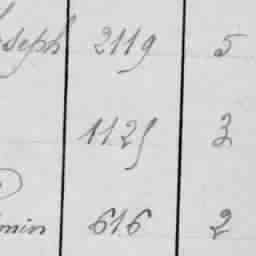 oseph 2119 5
1125 3
min 616 2